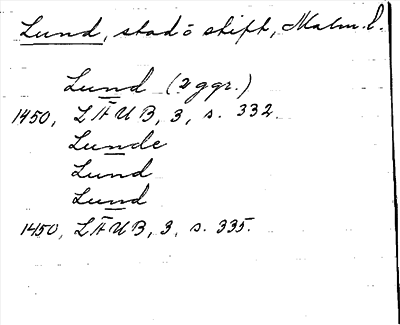 Lund, stad o stift, Malm. l.
Lund (2 ggr.)
1450, LÄUB, 3, s. 332.
Lunde
Lund
Lund
1450, LÄUB, 3, s. 335.